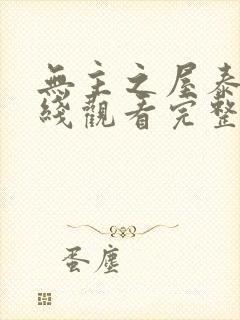 無主之屋泰
綫觀看完整
蛋塵